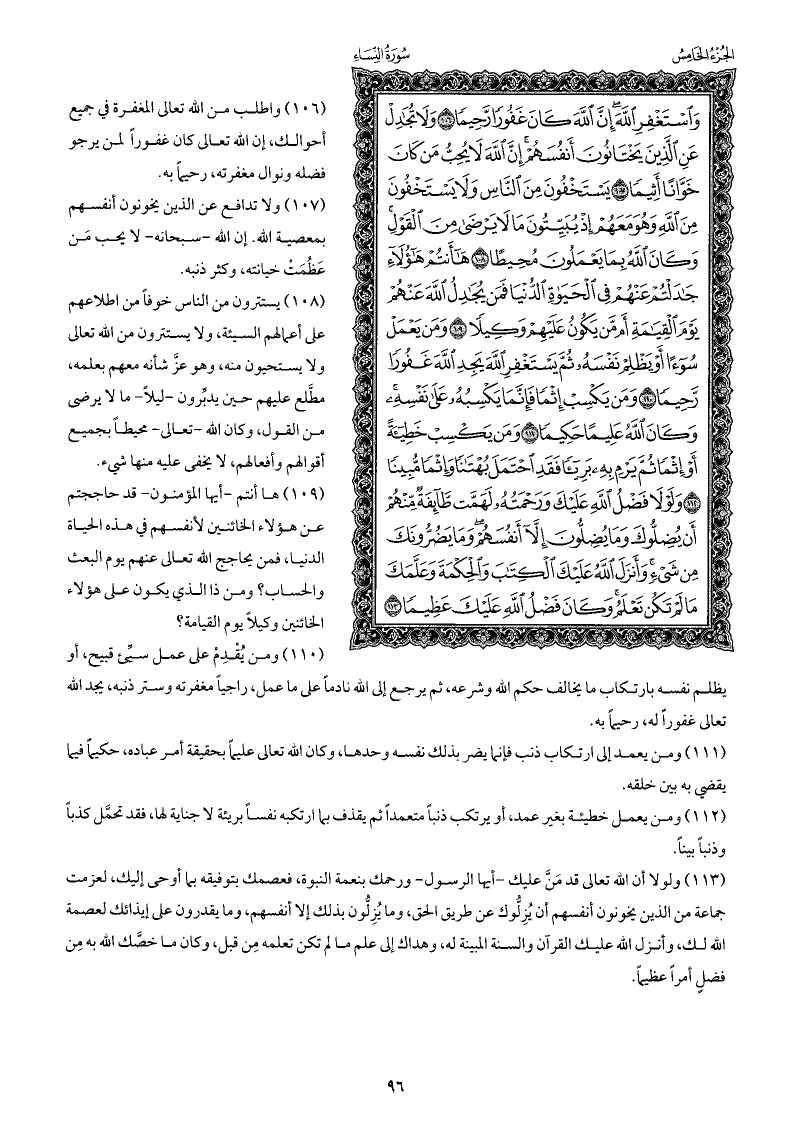 الجُزءُ الخَامِسُ
سُورَةُ النِّسَاءِ
وَاسْتَغْفِرِ اللَّهَ إِنَّ اللَّهَ كَانَ غَفُورًا رَّحِيمًا ١٠٦ وَلَا تُجَادِلْ
عَنِ الَّذِينَ يَخْتَانُونَ أَنفُسَهُمْ إِنَّ اللَّهَ لَا يُحِبُّ مَن كَانَ
خَوَّانًا أَثِيمًا ١٠٧ يَسْتَخْفُونَ مِنَ النَّاسِ وَلَا يَسْتَخْفُونَ
مِنَ اللَّهِ وَهُوَ مَعَهُمْ إِذْ يُبَيِّتُونَ مَا لَا يَرْضَىٰ مِنَ الْقَوْلِ
وَكَانَ اللَّهُ بِمَا يَعْمَلُونَ مُحِيطًا ١٠٨ هَٰٓأَنتُمْ هَٰٓؤُلَآءِ
جَٰدَلْتُمْ عَنْهُمْ فِي الْحَيَوٰةِ الدُّنْيَا فَمَن يُجَٰدِلُ اللَّهَ عَنْهُمْ
يَوْمَ الْقِيَٰمَةِ أَم مَّن يَكُونُ عَلَيْهِمْ وَكِيلًا ١٠٩ وَمَن يَعْمَلْ
سُوٓءًا أَوْ يَظْلِمْ نَفْسَهُۥ ثُمَّ يَسْتَغْفِرِ اللَّهَ يَجِدِ اللَّهَ غَفُورًا
رَّحِيمًا ١١٠ وَمَن يَكْسِبْ إِثْمًا فَإِنَّمَا يَكْسِبُهُۥ عَلَىٰ نَفْسِهِۦ
وَكَانَ اللَّهُ عَلِيمًا حَكِيمًا ١١١ وَمَن يَكْسِبْ خَطِيٓـَٔةً
أَوْ إِثْمًا ثُمَّ يَرْمِ بِهِۦ بَرِيٓـًٔا فَقَدِ احْتَمَلَ بُهْتَٰنًا وَإِثْمًا مُّبِينًا
١١٢ وَلَوْلَا فَضْلُ اللَّهِ عَلَيْكَ وَرَحْمَتُهُۥ لَهَمَّت طَّآئِفَةٌ مِّنْهُمْ
أَن يُضِلُّوكَ وَمَا يُضِلُّونَ إِلَّآ أَنفُسَهُمْ وَمَا يَضُرُّونَكَ
مِن شَيْءٍ وَأَنزَلَ اللَّهُ عَلَيْكَ الْكِتَٰبَ وَالْحِكْمَةَ وَعَلَّمَكَ
مَا لَمْ تَكُن تَعْلَمُ وَكَانَ فَضْلُ اللَّهِ عَلَيْكَ عَظِيمًا ١١٣
(١٠٦) واطلب من الله تعالى المغفرة في جميع
أحوالك، إن الله تعالى كان غفوراً لمن يرجو
فضله ونوال مغفرته، رحيماً به.
(١٠٧) ولا تدافع عن الذين يخونون أنفسهم
بمعصية الله. إن الله -سبحانه- لا يحب مَن
عَظُمَتْ خيانته، وكثر ذنبه.
(١٠٨) يستترون من الناس خوفاً من اطلاعهم
على أعمالهم السيئة، ولا يستترون من الله تعالى
ولا يستحيون منه، وهو عزَّ شأنه معهم بعلمه،
مطَّلع عليهم حين يدبِّرون -ليلاً- ما لا يرضى
من القول، وكان الله -تعالى- محيطاً بجميع
أقوالهم وأفعالهم، لا يخفى عليه منها شيء.
(١٠٩) ها أنتم -أيها المؤمنون- قد حاججتم
عن هؤلاء الخائنين لأنفسهم في هذه الحياة
الدنيا، فمن يحاجج الله تعالى عنهم يوم البعث
والحساب؟ ومن ذا الذي يكون على هؤلاء
الخائنين وكيلاً يوم القيامة؟
(١١٠) ومن يُقْدِمْ على عمل سيِّئ قبيح، أو
يظلم نفسه بارتكاب ما يخالف حكم الله وشرعه، ثم يرجع إلى الله نادماً على ما عمل، راجياً مغفرته وستر ذنبه، يجد الله
تعالى غفوراً له، رحيماً به.
(١١١) ومن يعمد إلى ارتكاب ذنب فإنما يضر بذلك نفسه وحدها، وكان الله تعالى عليماً بحقيقة أمر عباده، حكيماً فيما
يقضي به بين خلقه.
(١١٢) ومن يعمل خطيئة بغير عمد، أو يرتكب ذنباً متعمداً ثم يقذف بما ارتكبه نفساً بريئة لا جناية لها، فقد تحمَّل كذباً
وذنباً بيناً.
(١١٣) ولولا أن الله تعالى قد مَنَّ عليك -أيها الرسول- ورحمك بنعمة النبوة، فعصمك بتوفيقه بما أوحى إليك، لعزمت
جماعة من الذين يخونون أنفسهم أن يُزِلُّوك عن طريق الحق، وما يُزِلُّون بذلك إلا أنفسهم، وما يقدرون على إيذائك لعصمة
الله لك، وأنزل الله عليك القرآن والسنة المبينة له، وهداك إلى علم ما لم تكن تعلمه مِن قبل، وكان ما خصَّك الله به مِن
فضلٍ أمراً عظيماً.
٩٦